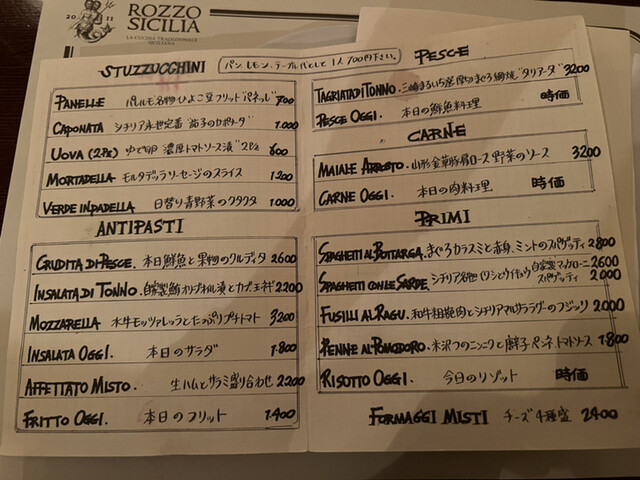 20 11
ROZZO
SICILIA
LA CUCINA TRADIZIONALE
SICILIANA
STUZZUCGHINI
パン、レモン、テーブル代として 1人 700円下さい。
PANELLE パレルモ名物ひよこ豆フリット"パネッレ" 700
CAPONATA シチリア永世定番"茄子のカポナータ" 1.000
UOVA (2PZ) ゆで卵 濃厚トマトソース漬"2Pz 600
MORTADELLA モルタデッラソーセージのスライス 1.200
VERDE IN PADELLA 日替り青野菜のクタクタ 1.000
ANTIPASTI
CRUDITÀ DI PESCE. 本日鮮魚と果物のクルデッタ 2600
INSALATA DI TONNO. 自家製鮪オリーブオイル漬とカブ 2200
MOZZARELLA 水牛モッツァレッラとたっぷりプチトマト 3200
INSALATA OGGI. 本日のサラダ 1.800
AFFETTATO MISTO. 生ハムとサラミ盛り合わせ 2200
FRITTO OGGI. 本日のフリット 1.400
PESCE
TAGRIATA DI TONNO. 三崎まるいち厚切りまぐろ網焼"タリアータ" 3200
PESCE OGGI. 本日の鮮魚料理 時価
CARNE
MAIALE ARROSTO. 山形金華豚肩ロース 野菜のソース 3200
CARNE OGGI. 本日の肉料理 時価
PRIMI
SPAGHETTI AL BOTTARGA. まぐろカラスミと赤身、ミントのスパゲッティ 2800
SPAGHETTI CON LE SARDE. シチリア名物イワシとウイキョウ 自家製マッカローニ 2600
スパゲッティ 2000
FUSILLI AL RAGU. 和牛粗挽肉とシチリアマルサラ ラグーのフジッリ 2.000
PENNE AL POMODORO. 米沢つのニンニクと唐辛子 ペンネ、トマトソース 1.800
RISOTTO OGGI. 今日のリゾット 時価
FORMAGGI MISTI チーズ4種盛 2400